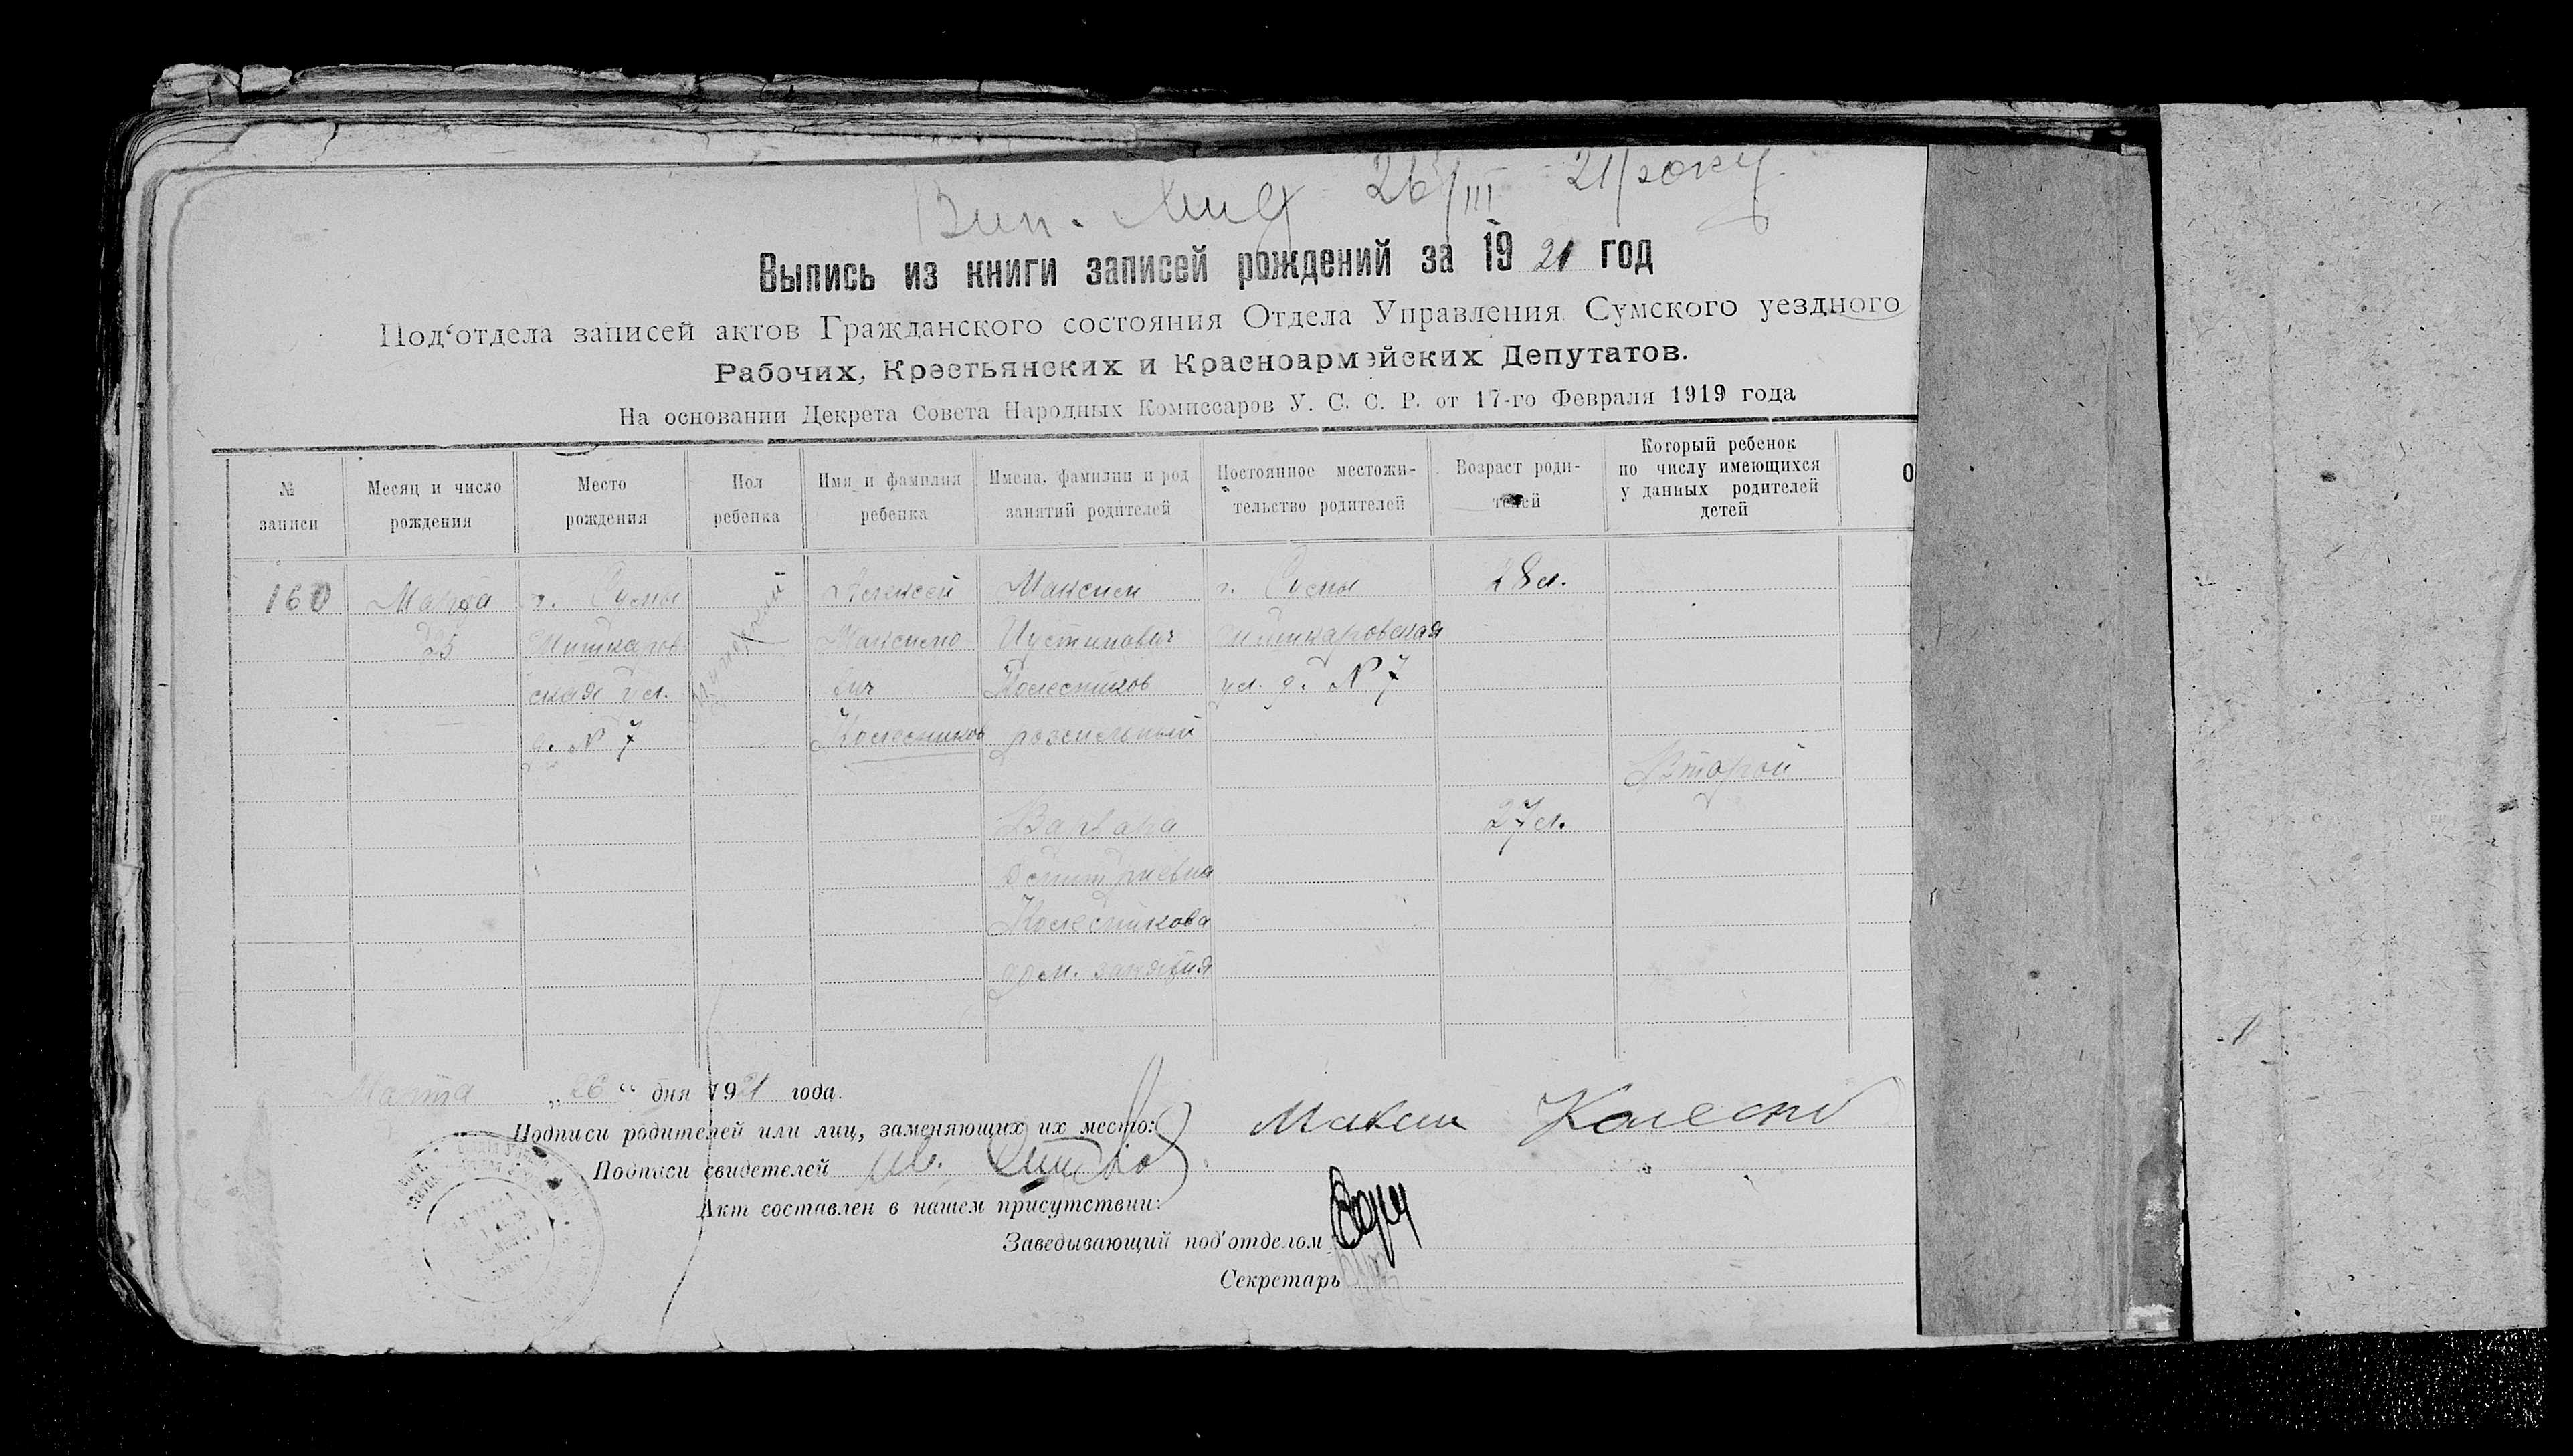 Вип. 26/III 21 року
Выпись из книги записей рождений за 1921 год
Под‘отдела записей актов Гражданского состояния Отдела Управления Сумского уездного
Рабочих, Крестьянских и Красноармейских Депутатов.
На основании Декрета Совета Народных Комиссаров У. С. С. Р. от 17-го Февраля 1919 года
№ записи
Месяц и число рождения
Место рождения
Пол ребенка
Имя и фамилия ребенка
Имена, фамилии и род занятий родителей
Постоянное местожительство родителей
Возраст родителей
Который ребенок по числу имеющихся у данных родителей детей
О
160 Марта г. Сумы мужской Алексей Максим г. Сумы 28 л.
25 Шишкаров- Максимо Иустинович Шишкаровская
ская ул. вич Колесников ул. д. № 7
д. № 7 Колесников розсильный
Второй
Варвара 27 л.
Дмитриевна
Колесникова
дом. занятия
Марта „26“ дня 1921 года.
Подписи родителей или лиц, заменяющих их место: Максим
Подписи свидетелей
Акт составлен в нашем присутствии:
Заведывающий под‘отделом
Секретарь